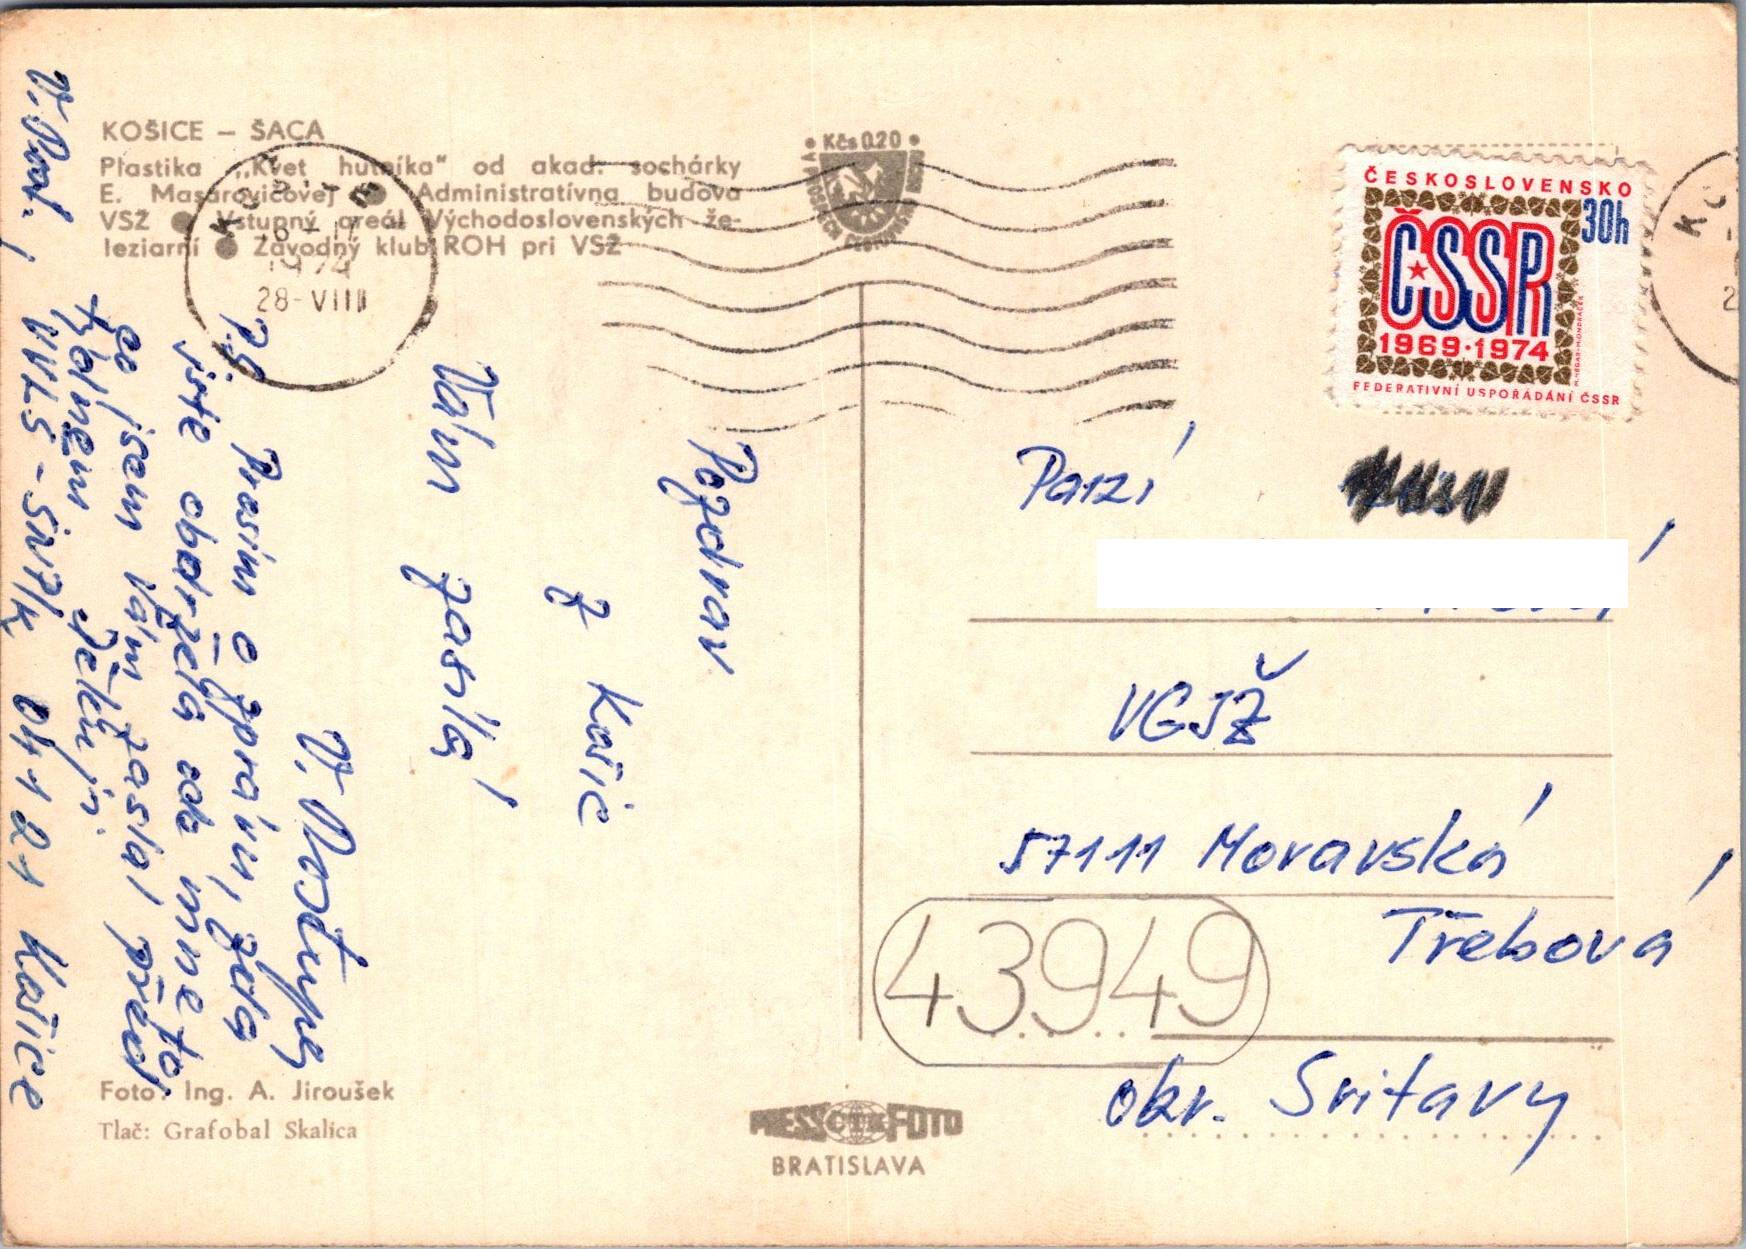 KOŠICE – ŠACA
Plastika „Kvet hutníka" od akad. sochárky
E. Masarovičovej ● Administratívna budova
VSŽ ● Vstupný areál Východoslovenských že-
leziarní ● Závodný klub ROH pri VSŽ
Kčs 0,20
KOŠICE
1974
28-VIII
ČESKOSLOVENSKO
30h
ČSSR
1969·1974
FEDERATIVNÍ USPOŘÁDÁNÍ ČSSR
Pozdrav
z Košic
Vám zasílá
P.S.
Prosím o zprávu, zda
jste obdržela ode mne to,
co jsem Vám zaslal před
týdnem. Děkuji.
VVLŠ-SNP/K 041 21 Košice
VGJŽ
57111 Moravská
Třebová
okr. Svitavy
43949
Foto: Ing. A. Jiroušek
Tlač: Grafobal Skalica
PRESSFOTO
BRATISLAVA